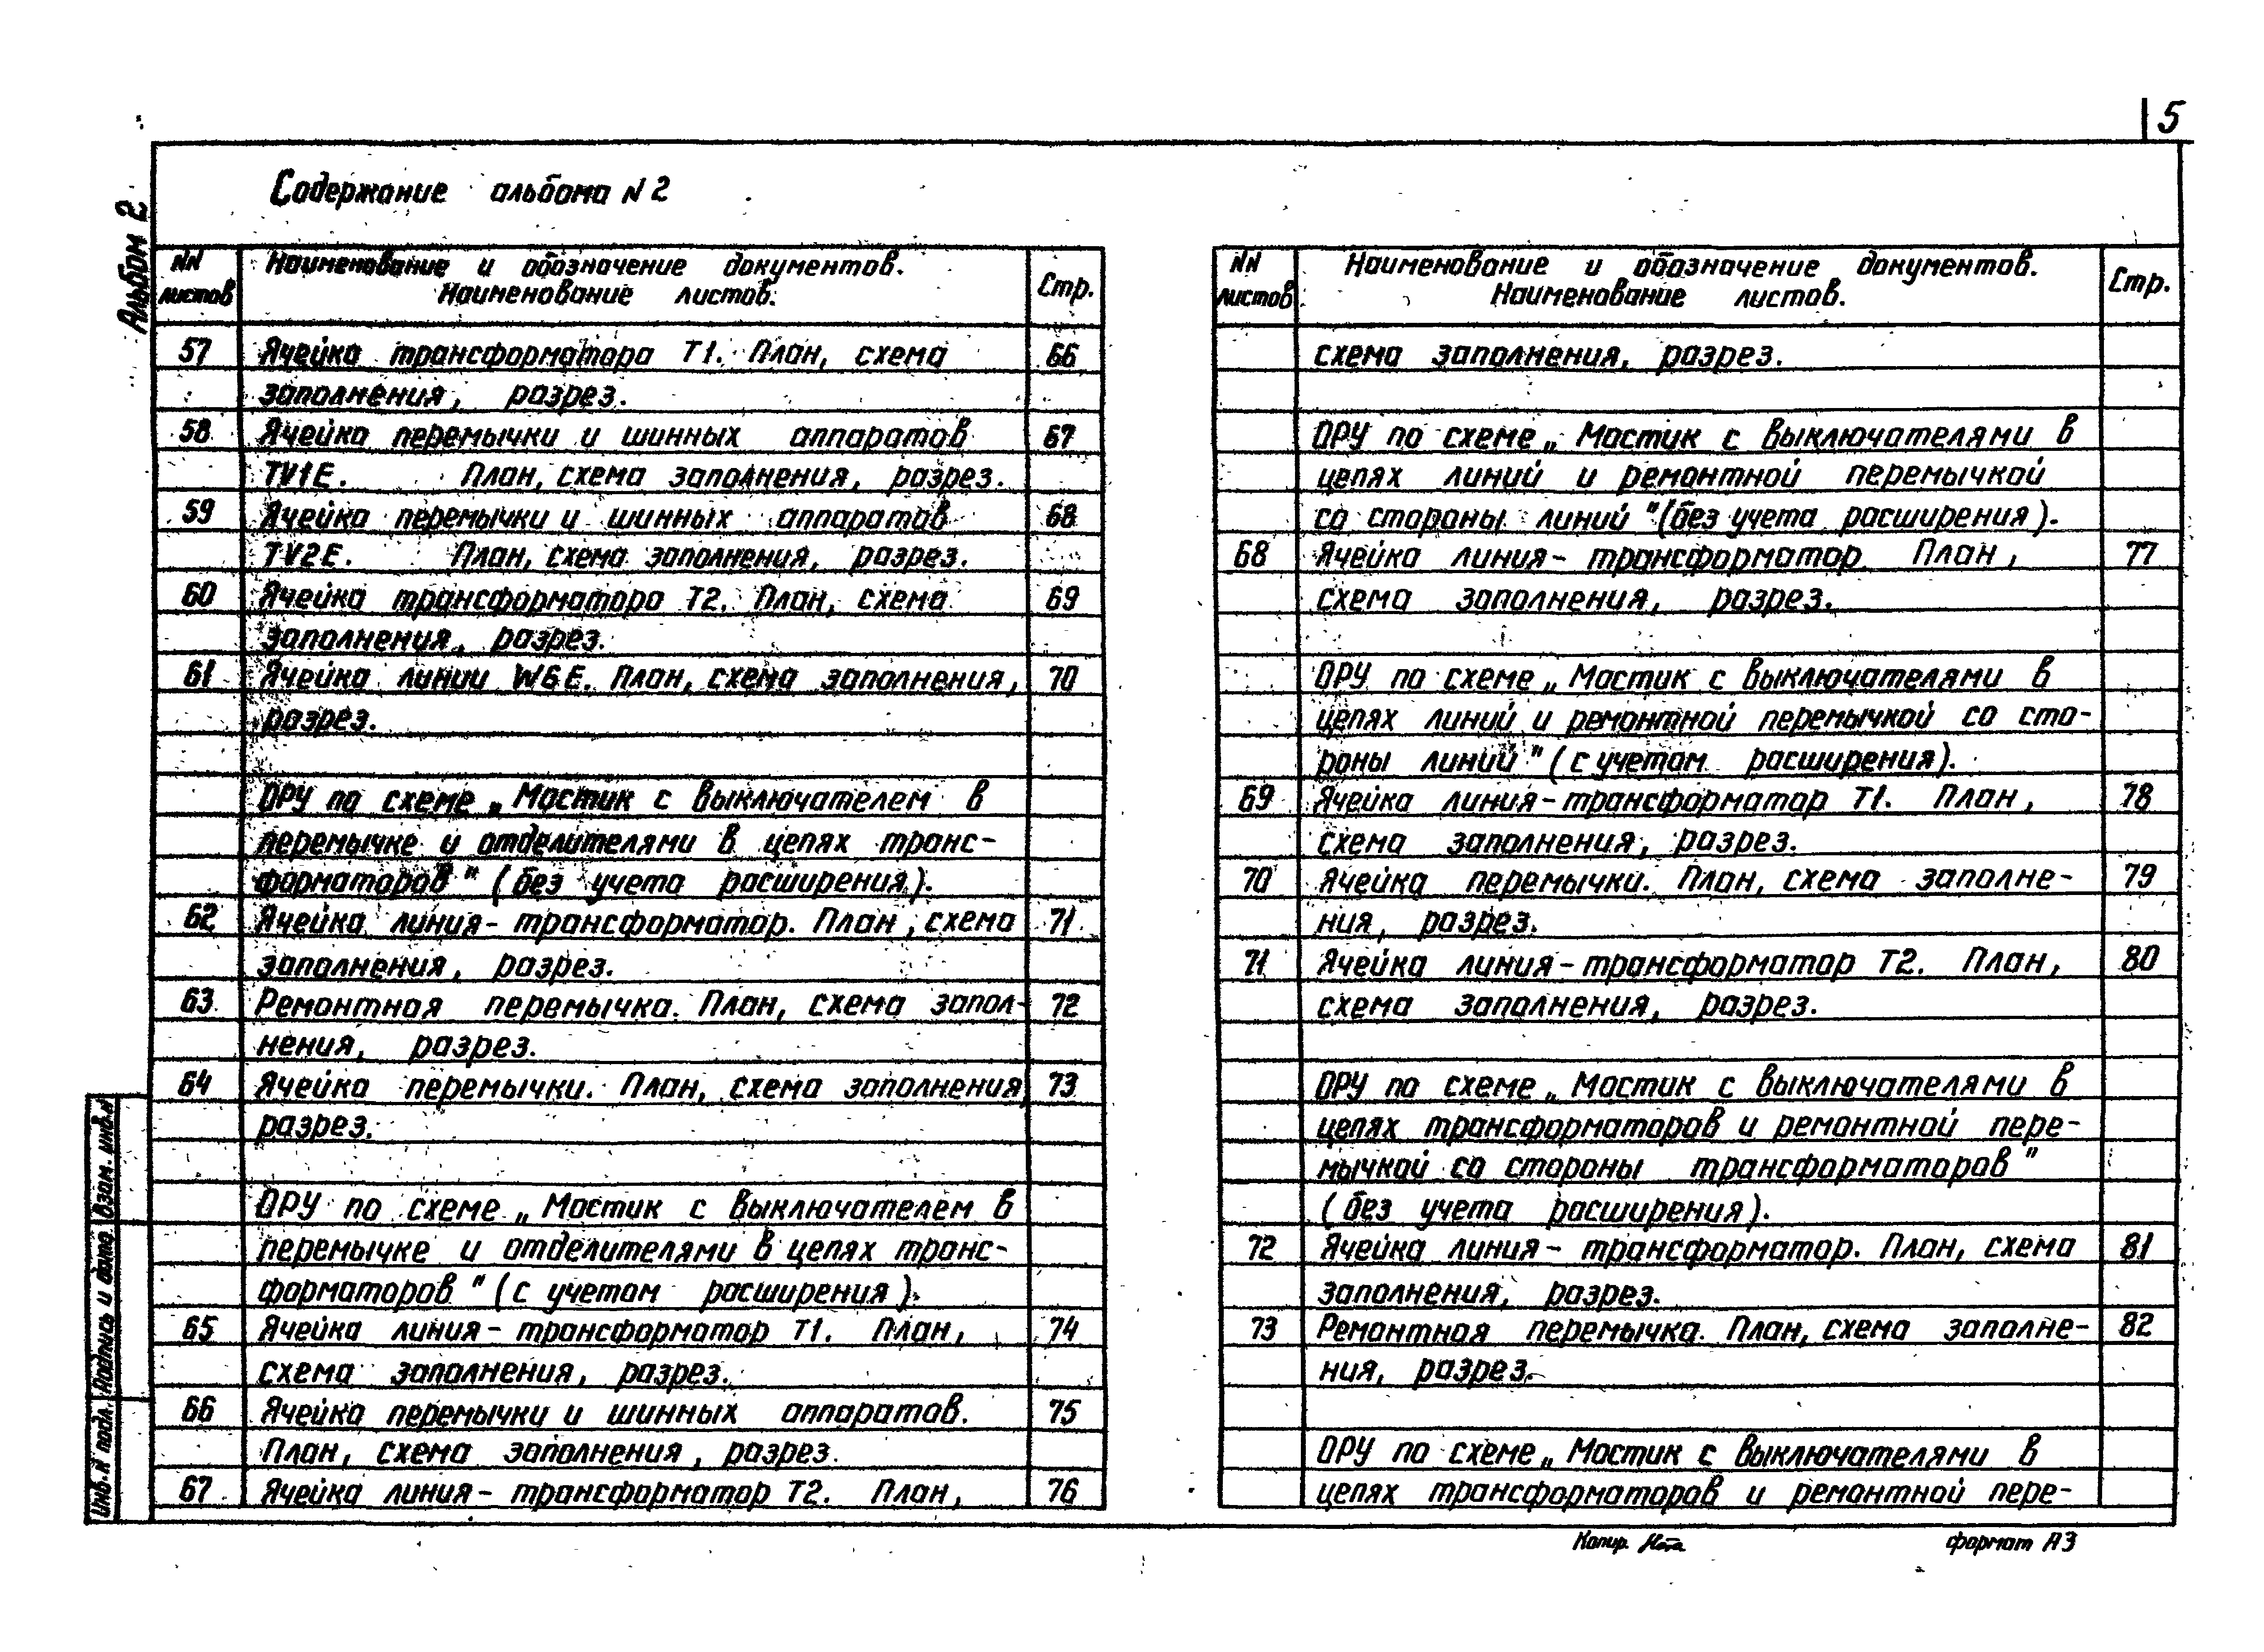 5
Альбом 2
Содержание альбома N 2
NN листов
Наименование и обозначение документов.
Наименование листов.
Стр.
57 Ячейка трансформатора Т1. План, схема 66
заполнения, разрез.
58 Ячейка перемычки и шинных аппаратов 67
TV1E. План, схема заполнения, разрез.
59 Ячейка перемычки и шинных аппаратов 68
TV2E. План, схема заполнения, разрез.
60 Ячейка трансформатора Т2. План, схема 69
заполнения, разрез.
61 Ячейка линии W6E. План, схема заполнения, 70
разрез.
ОРУ по схеме „Мостик с выключателем в
перемычке и отделителями в цепях транс-
форматоров" (без учета расширения).
62 Ячейка линия-трансформатор. План, схема 71
заполнения, разрез.
63 Ремонтная перемычка. План, схема запол- 72
нения, разрез.
64 Ячейка перемычки. План, схема заполнения, 73
разрез.
ОРУ по схеме „Мостик с выключателем в
перемычке и отделителями в цепях транс-
форматоров" (с учетом расширения).
65 Ячейка линия-трансформатор Т1. План, 74
схема заполнения, разрез.
66 Ячейка перемычки и шинных аппаратов. 75
План, схема заполнения, разрез.
67 Ячейка линия-трансформатор Т2. План, 76
NN листов
Наименование и обозначение документов.
Наименование листов.
Стр.
схема заполнения, разрез.
ОРУ по схеме „Мостик с выключателями в
цепях линий и ремонтной перемычкой
со стороны линий" (без учета расширения).
68 Ячейка линия-трансформатор. План, 77
схема заполнения, разрез.
ОРУ по схеме „Мостик с выключателями в
цепях линий и ремонтной перемычкой со сто-
роны линий" (с учетом расширения).
69 Ячейка линия-трансформатор Т1. План, 78
схема заполнения, разрез.
70 Ячейка перемычки. План, схема заполне- 79
ния, разрез.
71 Ячейка линия-трансформатор Т2. План, 80
схема заполнения, разрез.
ОРУ по схеме „Мостик с выключателями в
цепях трансформаторов и ремонтной пере-
мычкой со стороны трансформаторов"
(без учета расширения).
72 Ячейка линия-трансформатор. План, схема 81
заполнения, разрез.
73 Ремонтная перемычка. План, схема заполне- 82
ния, разрез.
ОРУ по схеме „Мостик с выключателями в
цепях трансформаторов и ремонтной пере-
Инв.N подл. Подпись и дата Взам. инв.N
Копир.
формат А3